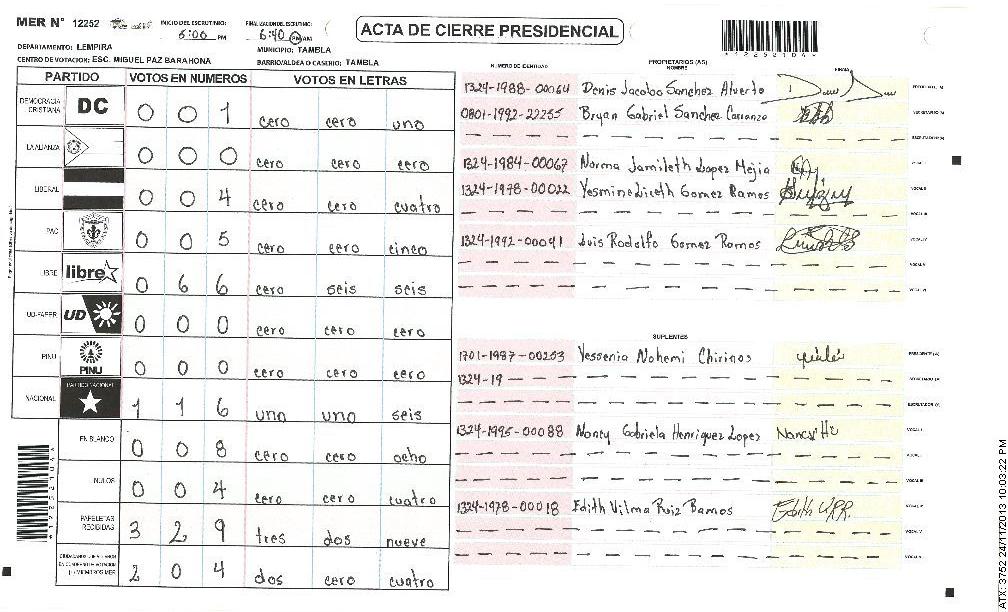 MER N° 12252
INICIO DEL ESCRUTINIO:
6:00 PM
FINALIZACION DEL ESCRUTINIO:
6:40 PM AM
ACTA DE CIERRE PRESIDENCIAL
DEPARTAMENTO: LEMPIRA
MUNICIPIO: TAMBLA
CENTRO DE VOTACION: ESC. MIGUEL PAZ BARAHONA
BARRIO/ALDEA O CASERIO: TAMBLA
PARTIDO VOTOS EN NUMEROS VOTOS EN LETRAS
DEMOCRACIA CRISTIANA DC 0 0 1 cero cero uno
LA ALIANZA 0 0 0 cero cero cero
LIBERAL 0 0 4 cero cero cuatro
PAC 0 0 5 cero cero cinco
LIBRE libre 0 6 6 cero seis seis
UD-FAPER UD 0 0 0 cero cero cero
PINU PINU 0 0 0 cero cero cero
NACIONAL PARTIDO NACIONAL 1 1 6 uno uno seis
EN BLANCO 0 0 8 cero cero ocho
NULOS 0 0 4 cero cero cuatro
PAPELETAS RECIBIDAS 3 2 9 tres dos nueve
2 0 4 dos cero cuatro
NUMERO DE IDENTIDAD
PROPIETARIOS (AS)
NOMBRE
FIRMA
1324-1988-00064 Denis Jacobo Sanchez Alverto
0801-1992-22255 Bryan Gabriel Sanchez Carranza
1324-1984-00067 Norma Jamileth Lopez Mejia
1324-1978-00022 Yesmin Liceth Gomez Ramos
1324-1992-00041 Luis Rodolfo Gomez Ramos
SUPLENTES
1701-1987-00253 Yessenia Nohemi Chirinos
1324-19
1324-1995-00088 Nancy Gabriela Henriquez Lopez
1324-1978-00018 Edith Vilma Ruiz Ramos
ATX: 3752 24/11/2013 10:03:22 PM